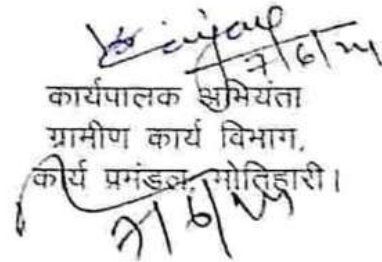 7/6/24
कार्यपालक अभियंता
ग्रामीण कार्य विभाग,
कार्य प्रमंडल, मोतिहारी।
7/6/24